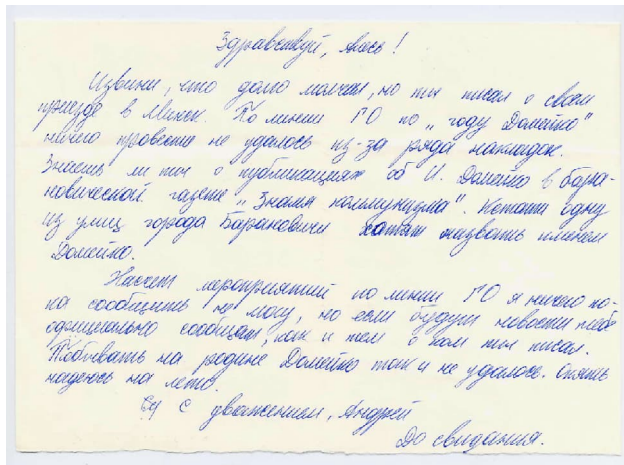 Здравствуй, Алесь!
Извини, что долго молчал, но ты писал о своём
приезде в Минск. По линии ГО по „году Домейко"
ничего провести не удалось из-за ряда накладок.
Знаешь ли ты о публикациях об И. Домейко в бара-
новической газете „Знамя коммунизма". Кстати одну
из улиц города Барановичи хотят назвать именем
Домейко.
Насчет мероприятий по линии ГО я ничего по-
ка сообщить не могу, но если будут новости тебе
официально сообщат, как и тем о ком ты писал.
Побывать на родине Домейко так и не удалось. Опять
надеюсь на лето.
С уважением, Андрей
До свидания.